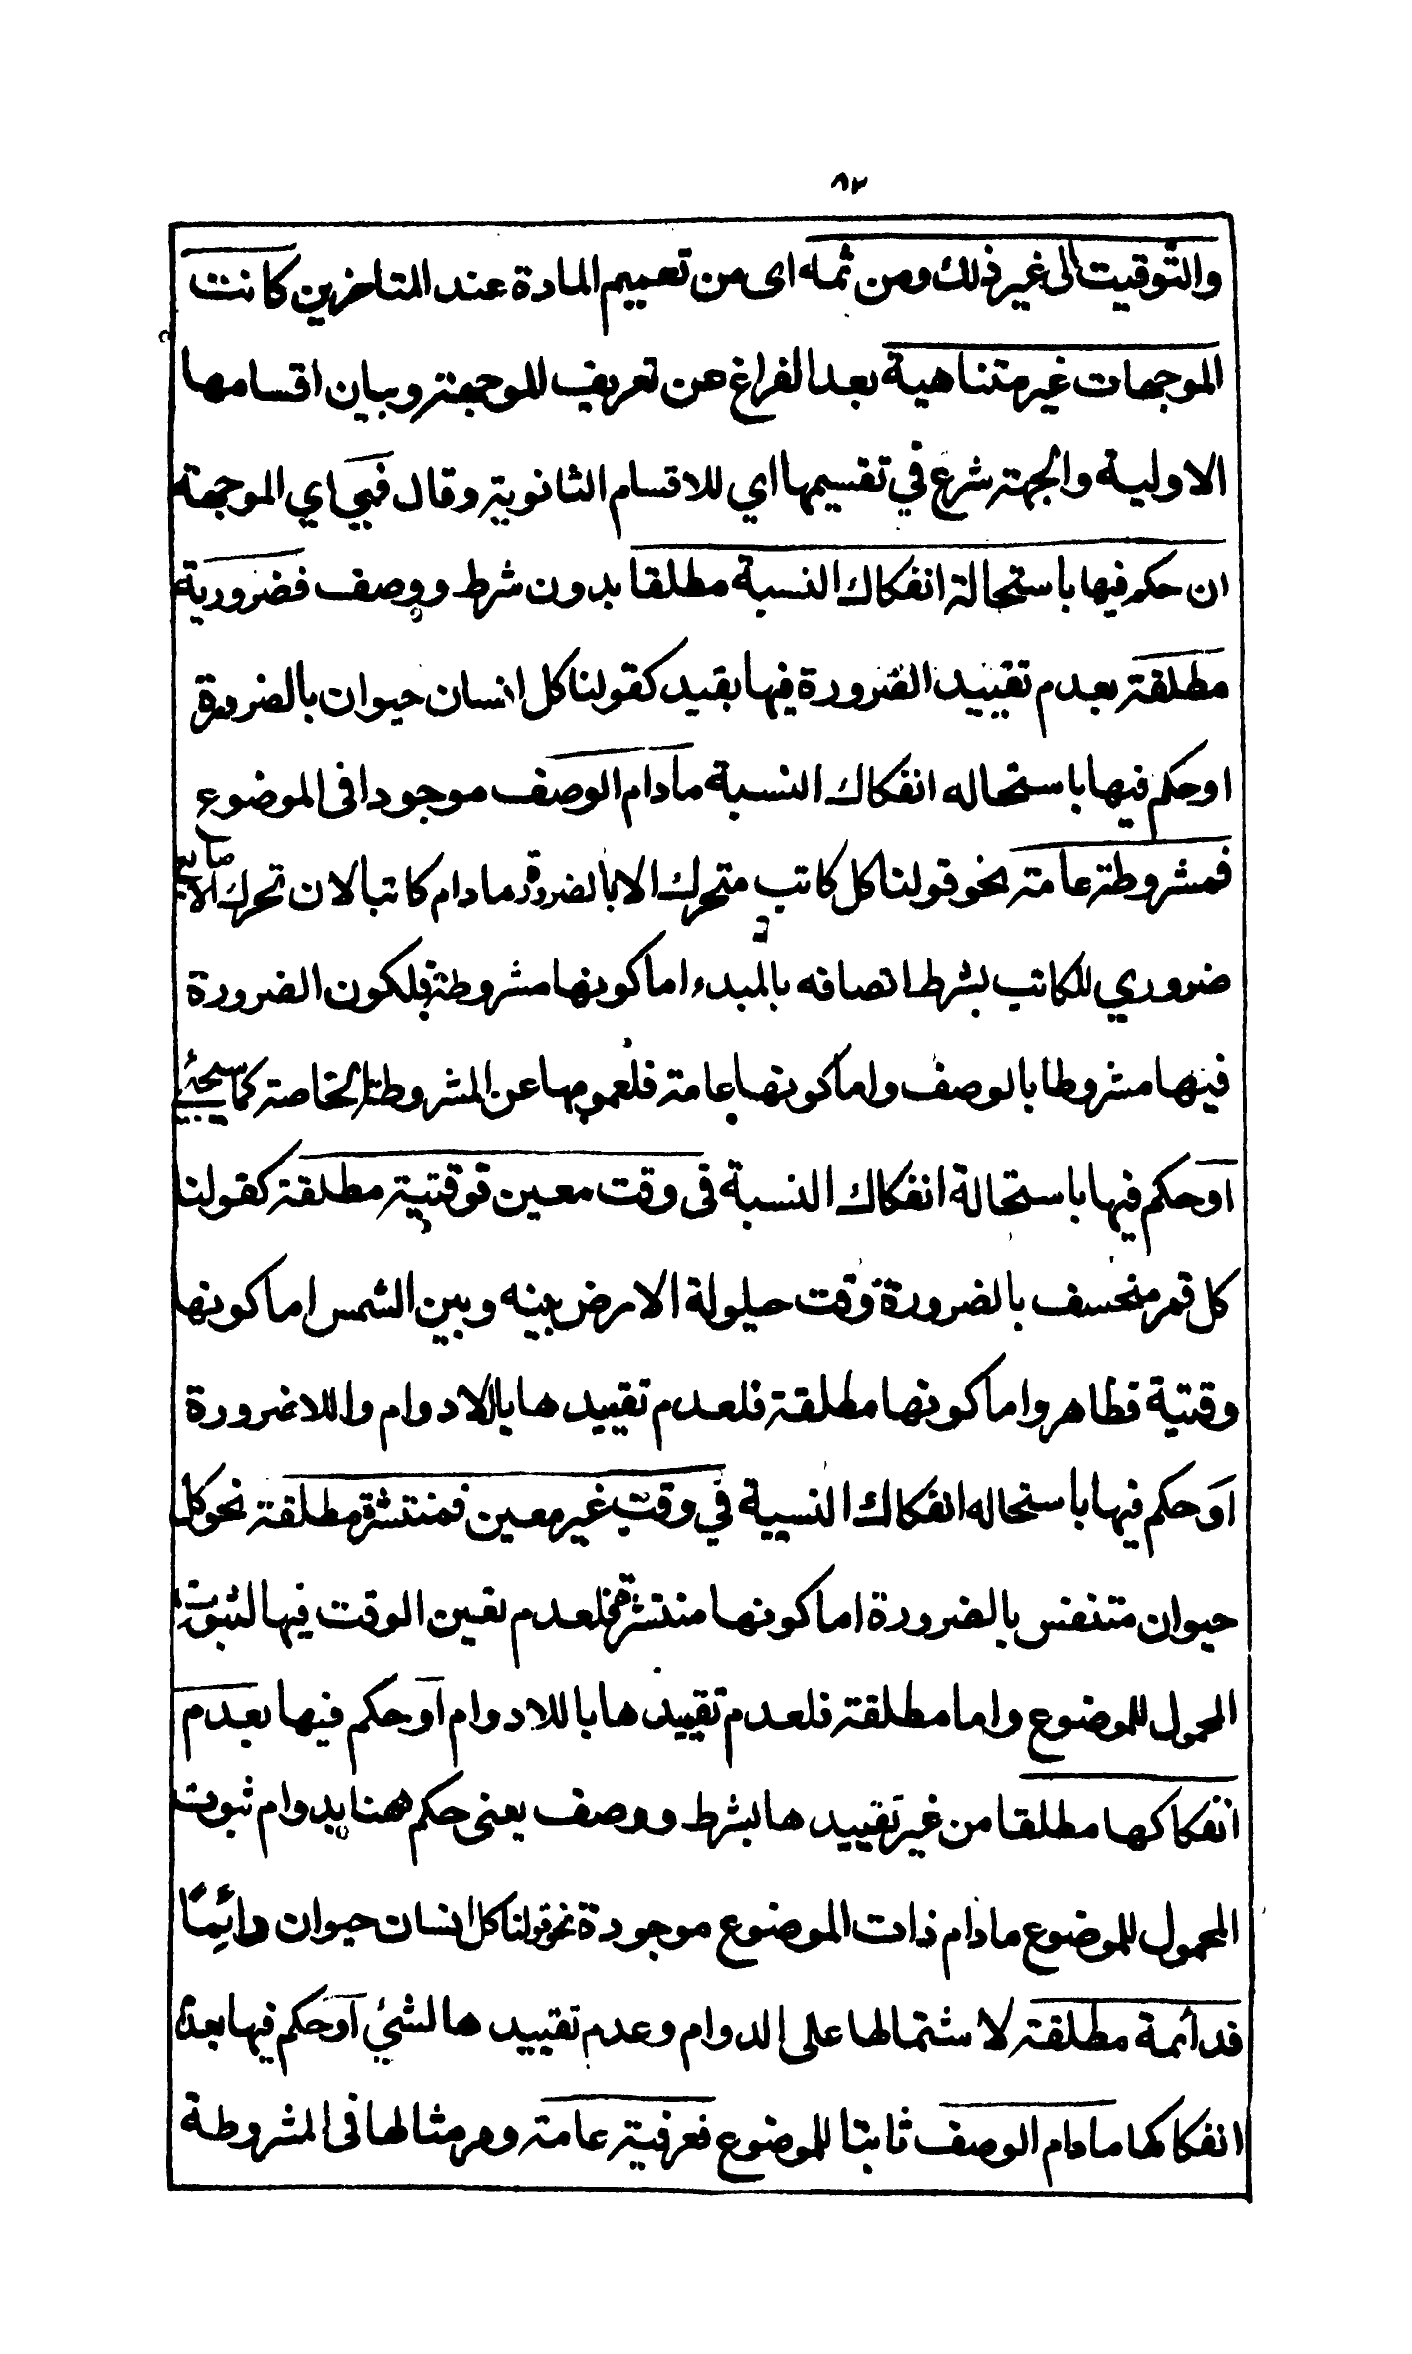 ٨٢
والتوقيت الى غير ذلك ومن ثمه اى من تعميم المادة عند المتاخرين كانت
الموجهات غير متناهية بعد الفراغ عن تعريف للموجهة وبيان اقسامها
الاولية والجهة شرع في تقسيمها اي للاقسام الثانوية وقال فهي اي الموجهة
ان حكم فيها باستحالة انفكاك النسبة مطلقا بدون شرط ووصف فضرورية
مطلقة بعدم تقييد الضرورة فيها بقيد كقولنا كل انسان حيوان بالضرورة
اوحكم فيها باستحاله انفكاك النسبة مادام الوصف موجودا فى الموضوع
فمشروطة عامة نحو قولنا كل كاتب متحرك الاصابع بالضرورة مادام كاتبا لان تحرك الاصابع
ضروري للكاتب بشرط اتصافه بالمبدء اما كونها مشروطة فلكون الضرورة
فيها مشروطا بالوصف واما كونها عامة فلعمومها عن المشروطة الخاصة كما سيجئ
اوحكم فيها باستحالة انفكاك النسبة فى وقت معين فوقتية مطلقة كقولنا
كل قمر منخسف بالضرورة وقت حيلولة الارض بينه وبين الشمس اما كونها
وقتية فظاهر واما كونها مطلقة فلعدم تقييد ها باللادوام واللاضرورة
اوحكم فيها باستحاله انفكاك النسبية في وقت غير معين فمنتشرة مطلقة نحو كل
حيوان متنفس بالضرورة اما كونها منتشرة فلعدم تعين الوقت فيها لثبوت
المحمول للموضوع واما مطلقة فلعدم تقييد ها باللادوام اوحكم فيها بعدم
انفكاكها مطلقا من غير تقييد ها بشرط ووصف يعنى حكم ههنا بدوام ثبوت
المحمول للموضوع مادام ذات الموضوع موجودة نحو قولنا كل انسان حيوان دائما
فدائمة مطلقة لاشتمالها على الدوام وعدم تقييد ها لشئي اوحكم فيها بعدم
انفكاكها مادام الوصف ثابتا للموضوع فعرفية عامة ومر مثالها فى المشروطة